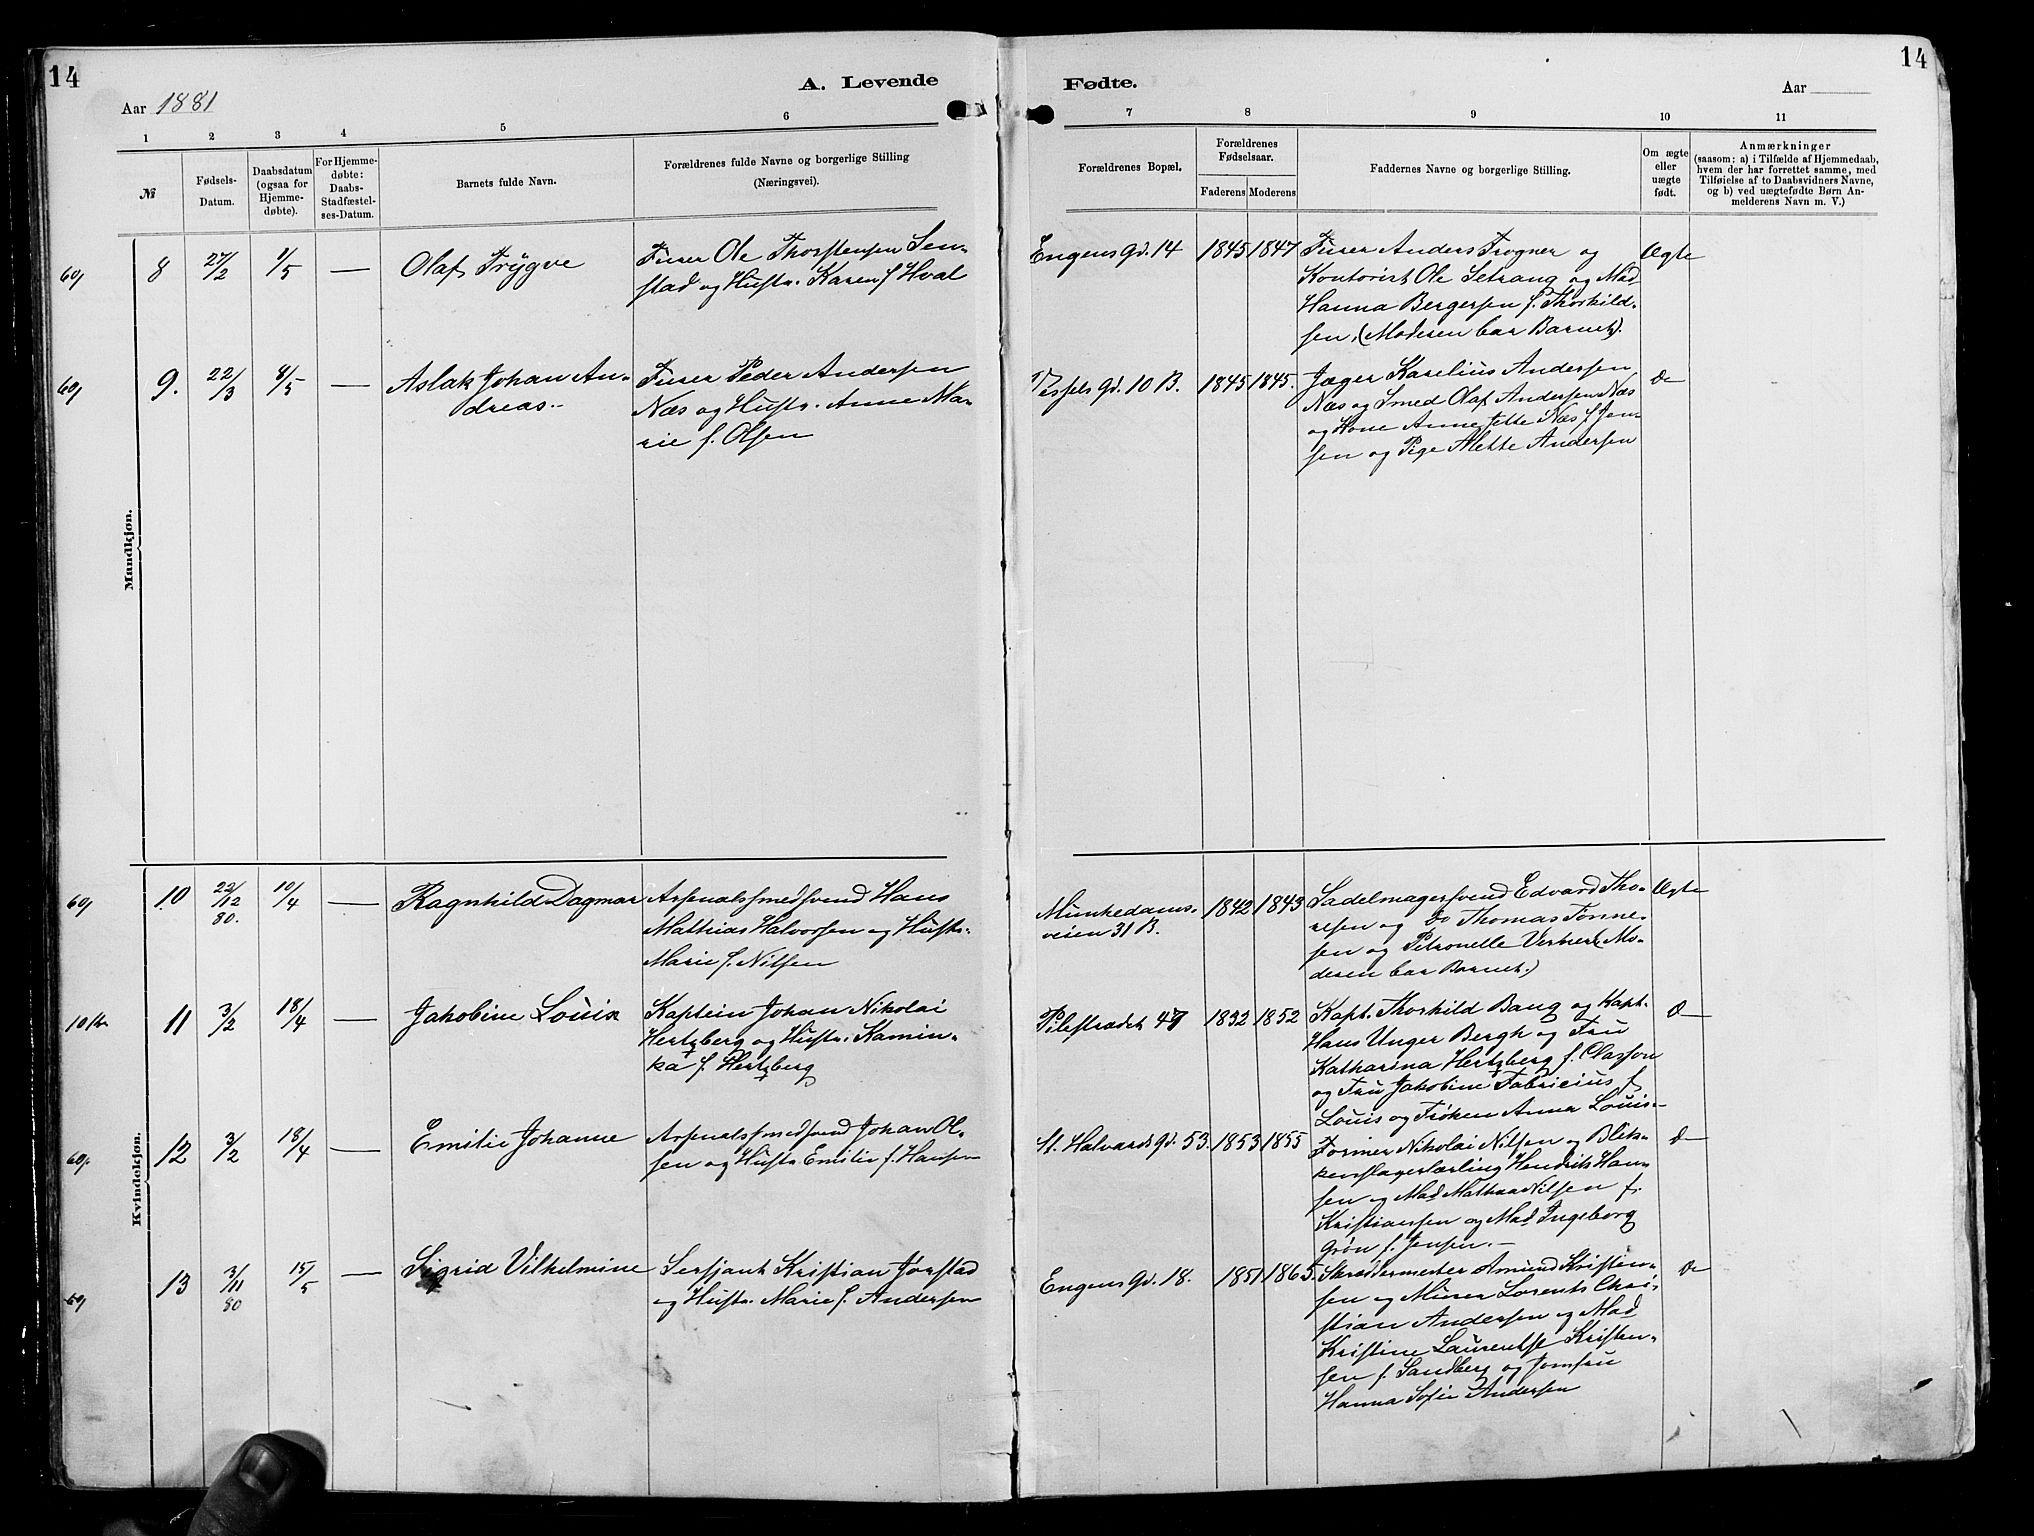 14
A. Levende
Aar 1881
1 2 3 4 5 6
№
Fødsels-
Datum.
Daabsdatum
(ogsaa for
Hjemme-
døbte).
For Hjemme-
døbte:
Daabs-
Stadfæstel-
ses-Datum.
Barnets fulde Navn.
Forældrenes fulde Navne og borgerlige Stilling
(Næringsvei).
Mandkjøn.
8 27/2 1/5 —
Olaf Trygve
Furer Ole Thorstensen Sen-
stad og Hustr. Karen f. Hval
9. 22/3 8/5 —
Aslak Johan An-
dreas.
Furer Peder Andersen
Næs og Hustr. Anne Ma-
rie f. Olsen
Kvindekjøn.
10 22/12 80. 10/4 —
Ragnhild Dagmar
Arsenalsmedsvend Hans
Mathias Halvorsen og Hustr.
Marie f. Nilsen
10 Kr
11 3/2 18/4 —
Jakobine Louis
Kaptein Johan Nikolai
Hertzberg og Hustr. Kamin-
ka f. Hertzberg
12 3/2 18/4 —
Emilie Johanne
Arsenalsmedsvend Johan Ol-
sen og Hustr. Emilie f. Hansen
13 3/11 80 15/5 —
Sigrid Vilhelmine
Sersjant Kristian Jørstad
og Hustr. Marie f. Andersen
14
Fødte.
Aar
7 8 9 10 11
Forældrenes Bopæl.
Forældrenes
Fødselsaar.
Faderens Moderens
Faddernes Navne og borgerlige Stilling.
Om ægte
eller
uægte
født.
Anmærkninger
(saasom: a) i Tilfælde af Hjemmedaab,
hvem der har forrettet samme, med
Tilføielse af to Daabsvidners Navne,
og b) ved uægtefødte Børn An-
melderens Navn m. V.)
Engens Gd. 14 1845 1847
Furer Anders Trogner og
Kontorist Ole Setrang og Mad
Hanna Bergersen f. Thorkild-
sen, (Moderen bar Barnet).
Ægte
Vessels Gd. 10 B. 1845 1845.
Jæger Karelius Andersen
Næs og Smed Olaf Andersen Næs
og Kone Anne Jette Næs f. Jen-
sen og Pige Mette Andersen
Do
Munkedams-
veien 31 B. 1842 1843
Sadelmagersvend Edvard Tho-
resen og Do Thomas Tønne-
sen og Petronelle Verner (Mo-
deren bar Barnet.)
Ægte
Pilestrædet 47 1832 1852
Kapt. Thorkild Bang og Kapt.
Hans Unger Bergh og Fru
Katharina Hertzberg f. Classon
og Fru Jakobine Fabricius f.
Louis og Frøken Anna Louis
Do
St. Halvards Gd. 53. 1853 1855
Former Nikolai Nilsen og Blik-
kenslagerlærling Hendrik Han-
sen og Mad Mathea Nilsen f.
Kristiansen og Mad Ingeborg
Grøn f. Jensen. —
Do
Engens Gd. 18. 1851 1865.
Skræddermester Amund Kristen-
sen og Murer Lorents Chri-
stian Andersen og Mad
Kristine Laurentse Kristen-
sen f. Sandberg og Jomfru
Hanna Sofie Andersen
Do